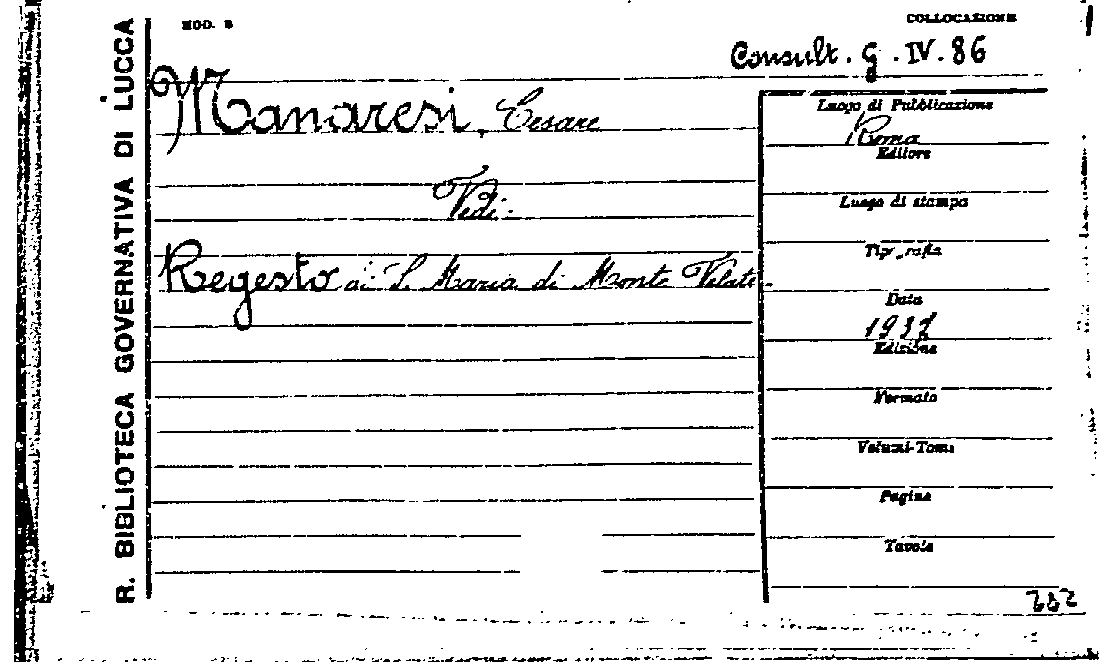 R. BIBLIOTECA GOVERNATIVA DI LUCCA
MOD. B
COLLOCAZIONE
Consult. G. IV. 86
Manaresi, Cesare
Vedi:
Regesto di S. Maria di Monte Velate.
Luogo di Pubblicazione
Roma
Editore
Luogo di stampa
Tipografia
Data
1937
Edizione
Formato
Volumi-Tomi
Pagine
Tavole